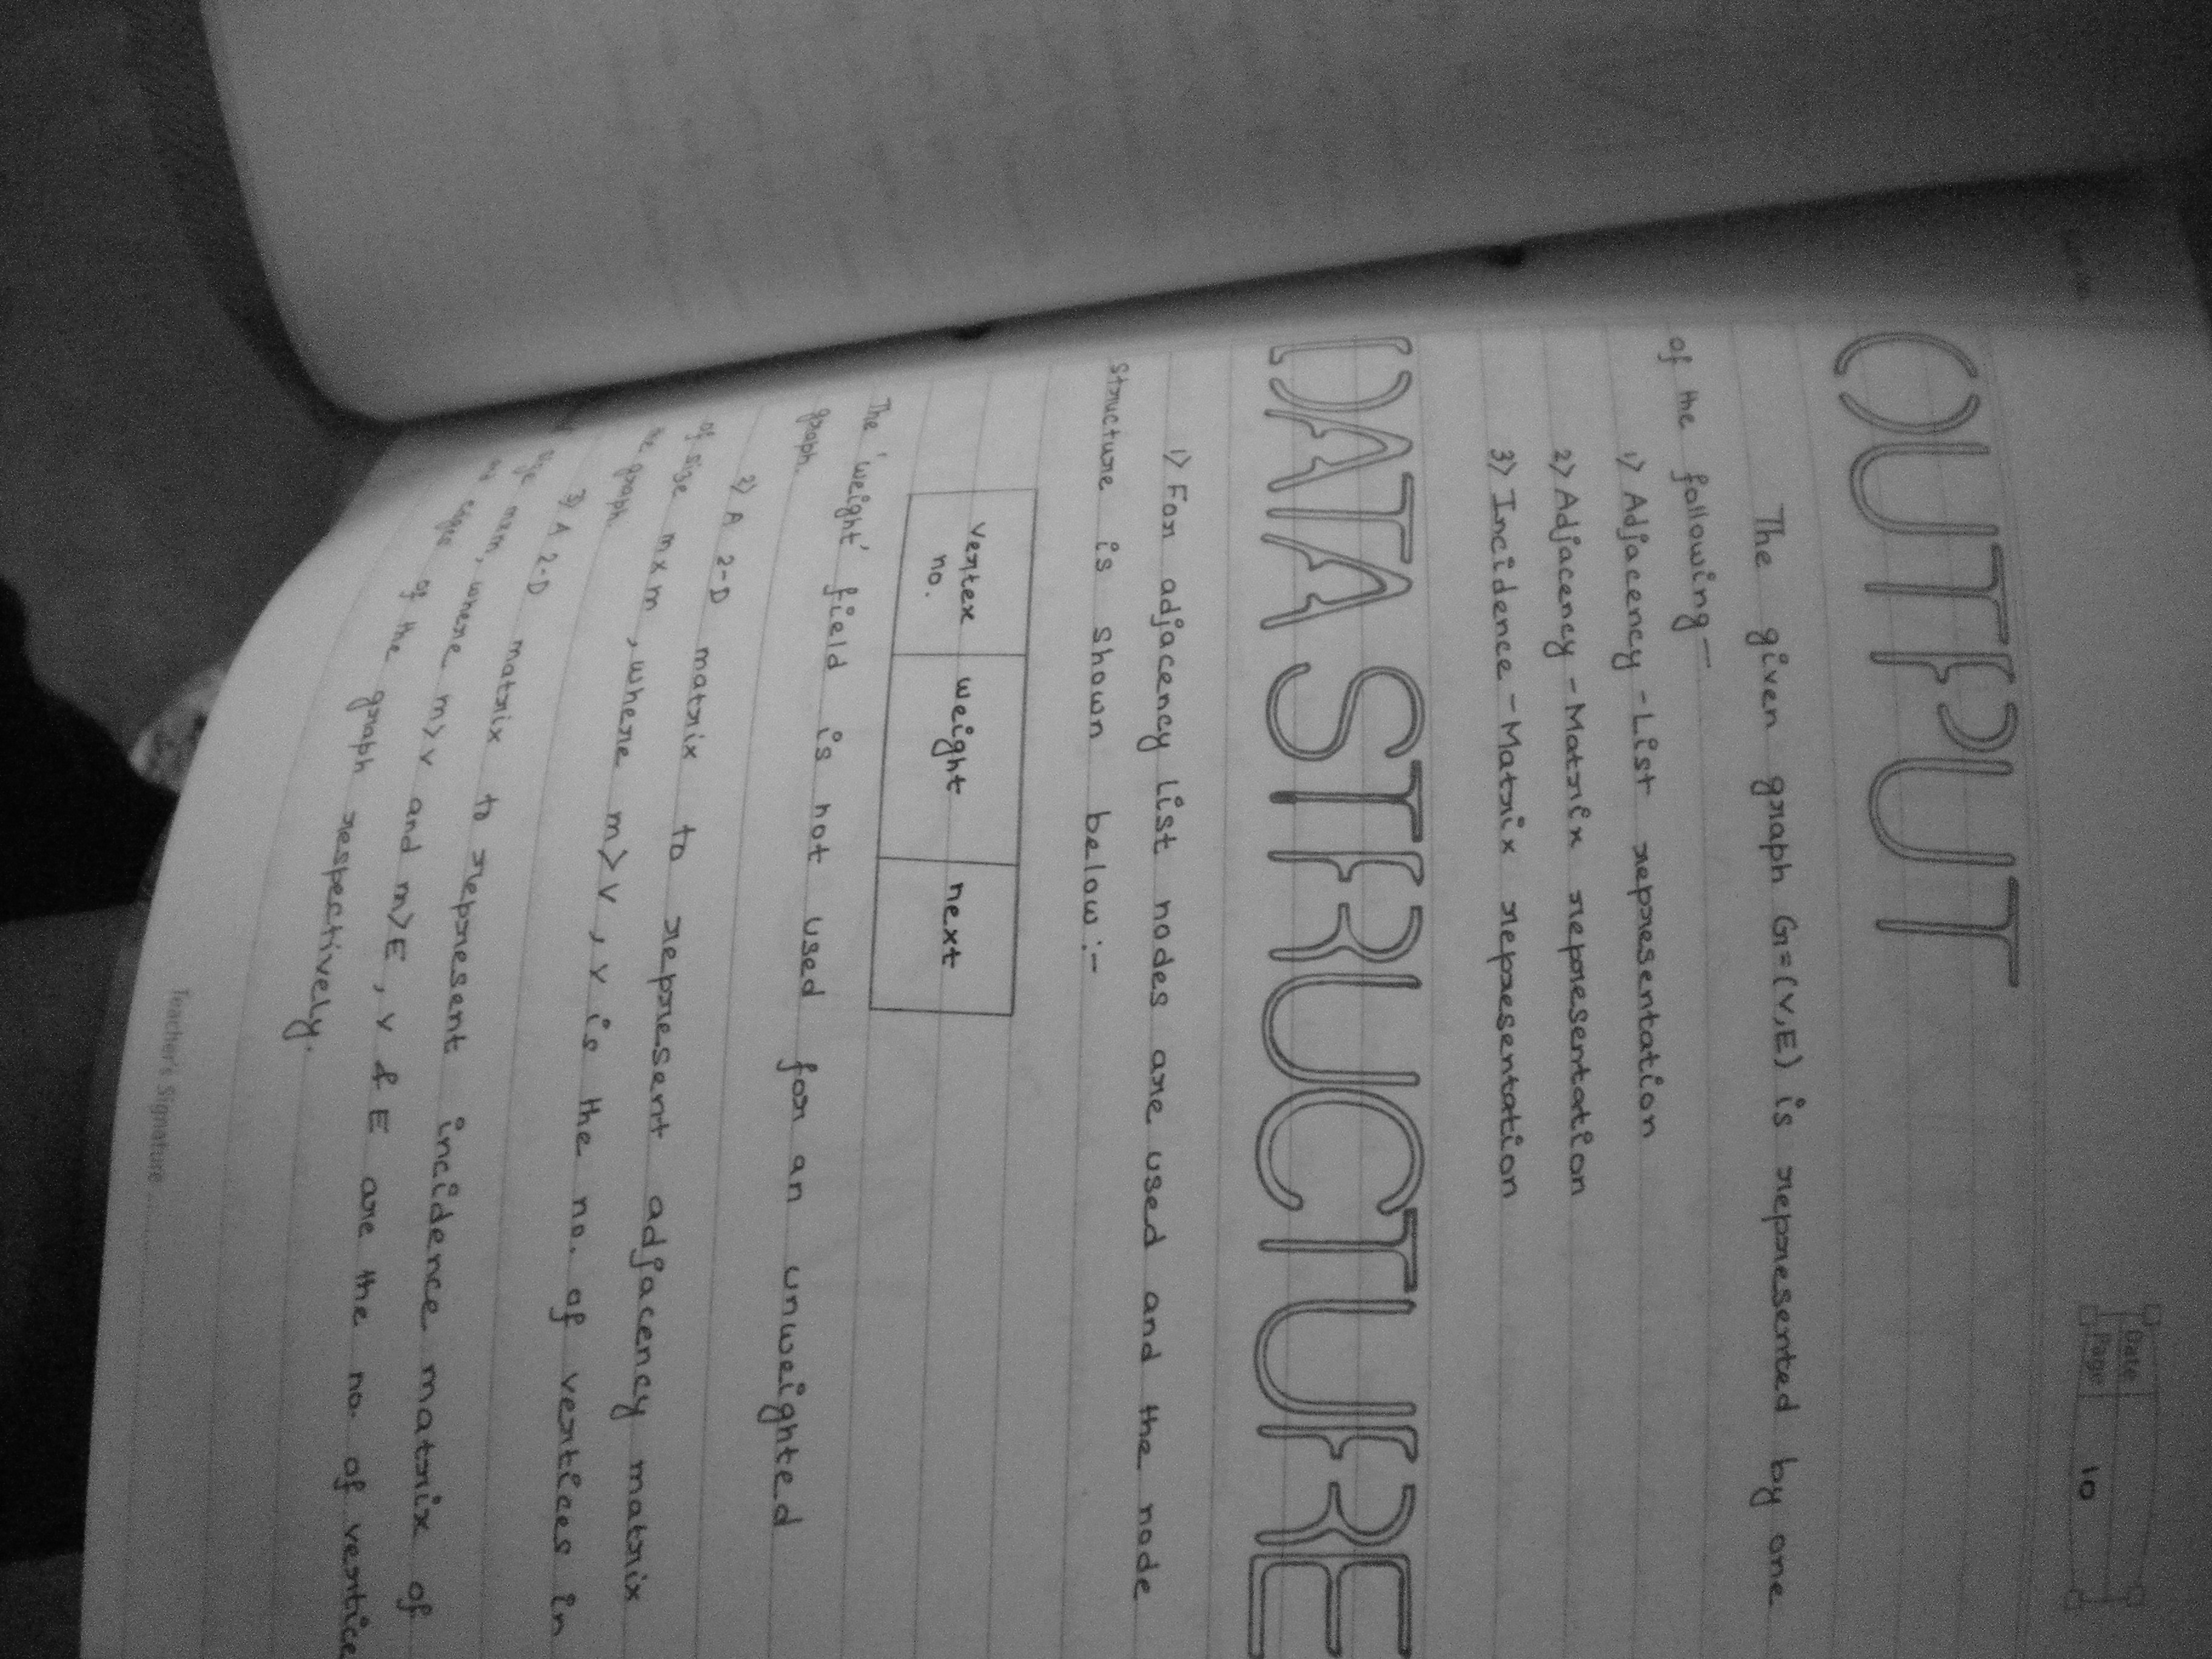 Date
Page 10
OUTPUT
The given graph G=(V,E) is represented by one
of the following—
1) Adjacency-List representation
2) Adjacency-Matrix representation
3) Incidence-Matrix representation
DATA STRUCTURE
1) For adjacency list nodes are used and the node
structure is shown below:-
vertex no. weight next
The 'weight' field is not used for an unweighted
graph.
2) A 2-D matrix to represent adjacency matrix
of size mxm, where m>V, V is the no. of vertices in
the graph.
3) A 2-D matrix to represent incidence matrix of
size mxm, where m>V and m>E, V & E are the no. of vertice
edges of the graph respectively.
Teacher's Signature